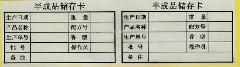 半成品储存卡
生产日期 重量
产品名称 配方号
生产单号 香型
批号 操作员
备注
半成品储存卡
生产日期 重量
产品名称 配方号
生产单号 香型
批号 操作员
备注